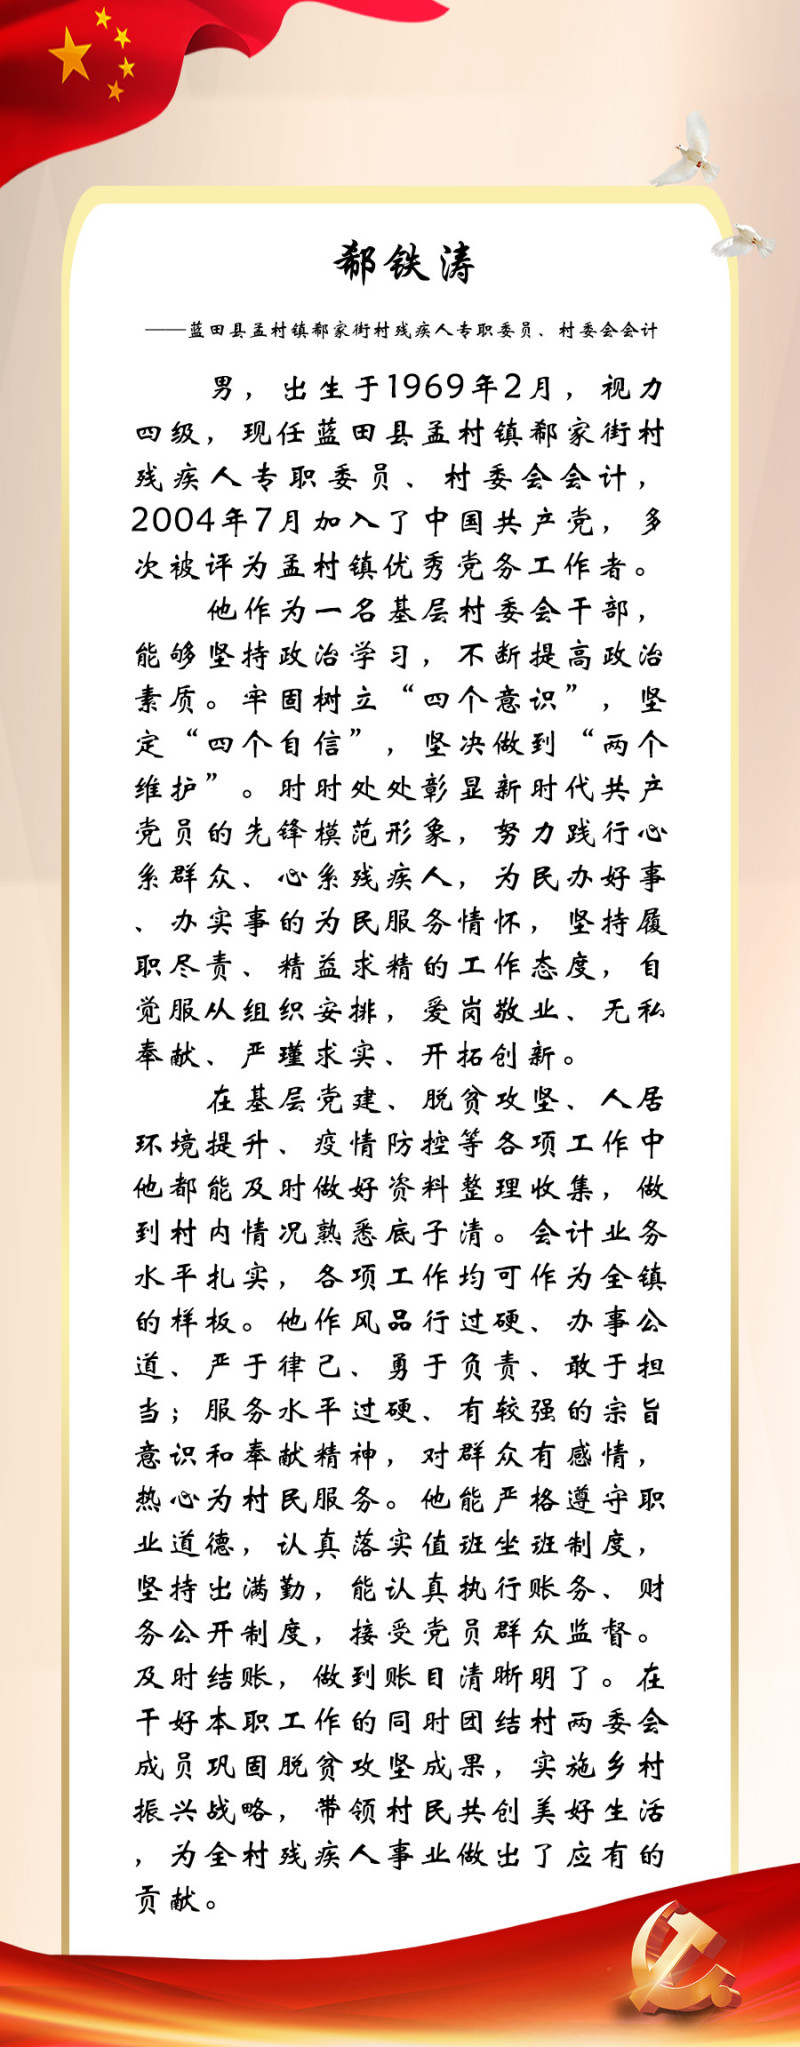 郗铁涛
——蓝田县孟村镇郗家街村残疾人专职委员、村委会会计
男，出生于1969年2月，视力
四级，现任蓝田县孟村镇郗家街村
残疾人专职委员、村委会会计，
2004年7月加入了中国共产党，多
次被评为孟村镇优秀党务工作者。
他作为一名基层村委会干部，
能够坚持政治学习，不断提高政治
素质。牢固树立“四个意识”，坚
定“四个自信”，坚决做到“两个
维护”。时时处处彰显新时代共产
党员的先锋模范形象，努力践行心
系群众、心系残疾人，为民办好事
、办实事的为民服务情怀，坚持履
职尽责、精益求精的工作态度，自
觉服从组织安排，爱岗敬业、无私
奉献、严瑾求实、开拓创新。
在基层党建、脱贫攻坚、人居
环境提升、疫情防控等各项工作中
他都能及时做好资料整理收集，做
到村内情况熟悉底子清。会计业务
水平扎实，各项工作均可作为全镇
的样板。他作风品行过硬、办事公
道、严于律己、勇于负责、敢于担
当；服务水平过硬、有较强的宗旨
意识和奉献精神，对群众有感情，
热心为村民服务。他能严格遵守职
业道德，认真落实值班坐班制度，
坚持出满勤，能认真执行账务、财
务公开制度，接受党员群众监督。
及时结账，做到账目清晰明了。在
干好本职工作的同时团结村两委会
成员巩固脱贫攻坚成果，实施乡村
振兴战略，带领村民共创美好生活
，为全村残疾人事业做出了应有的
贡献。